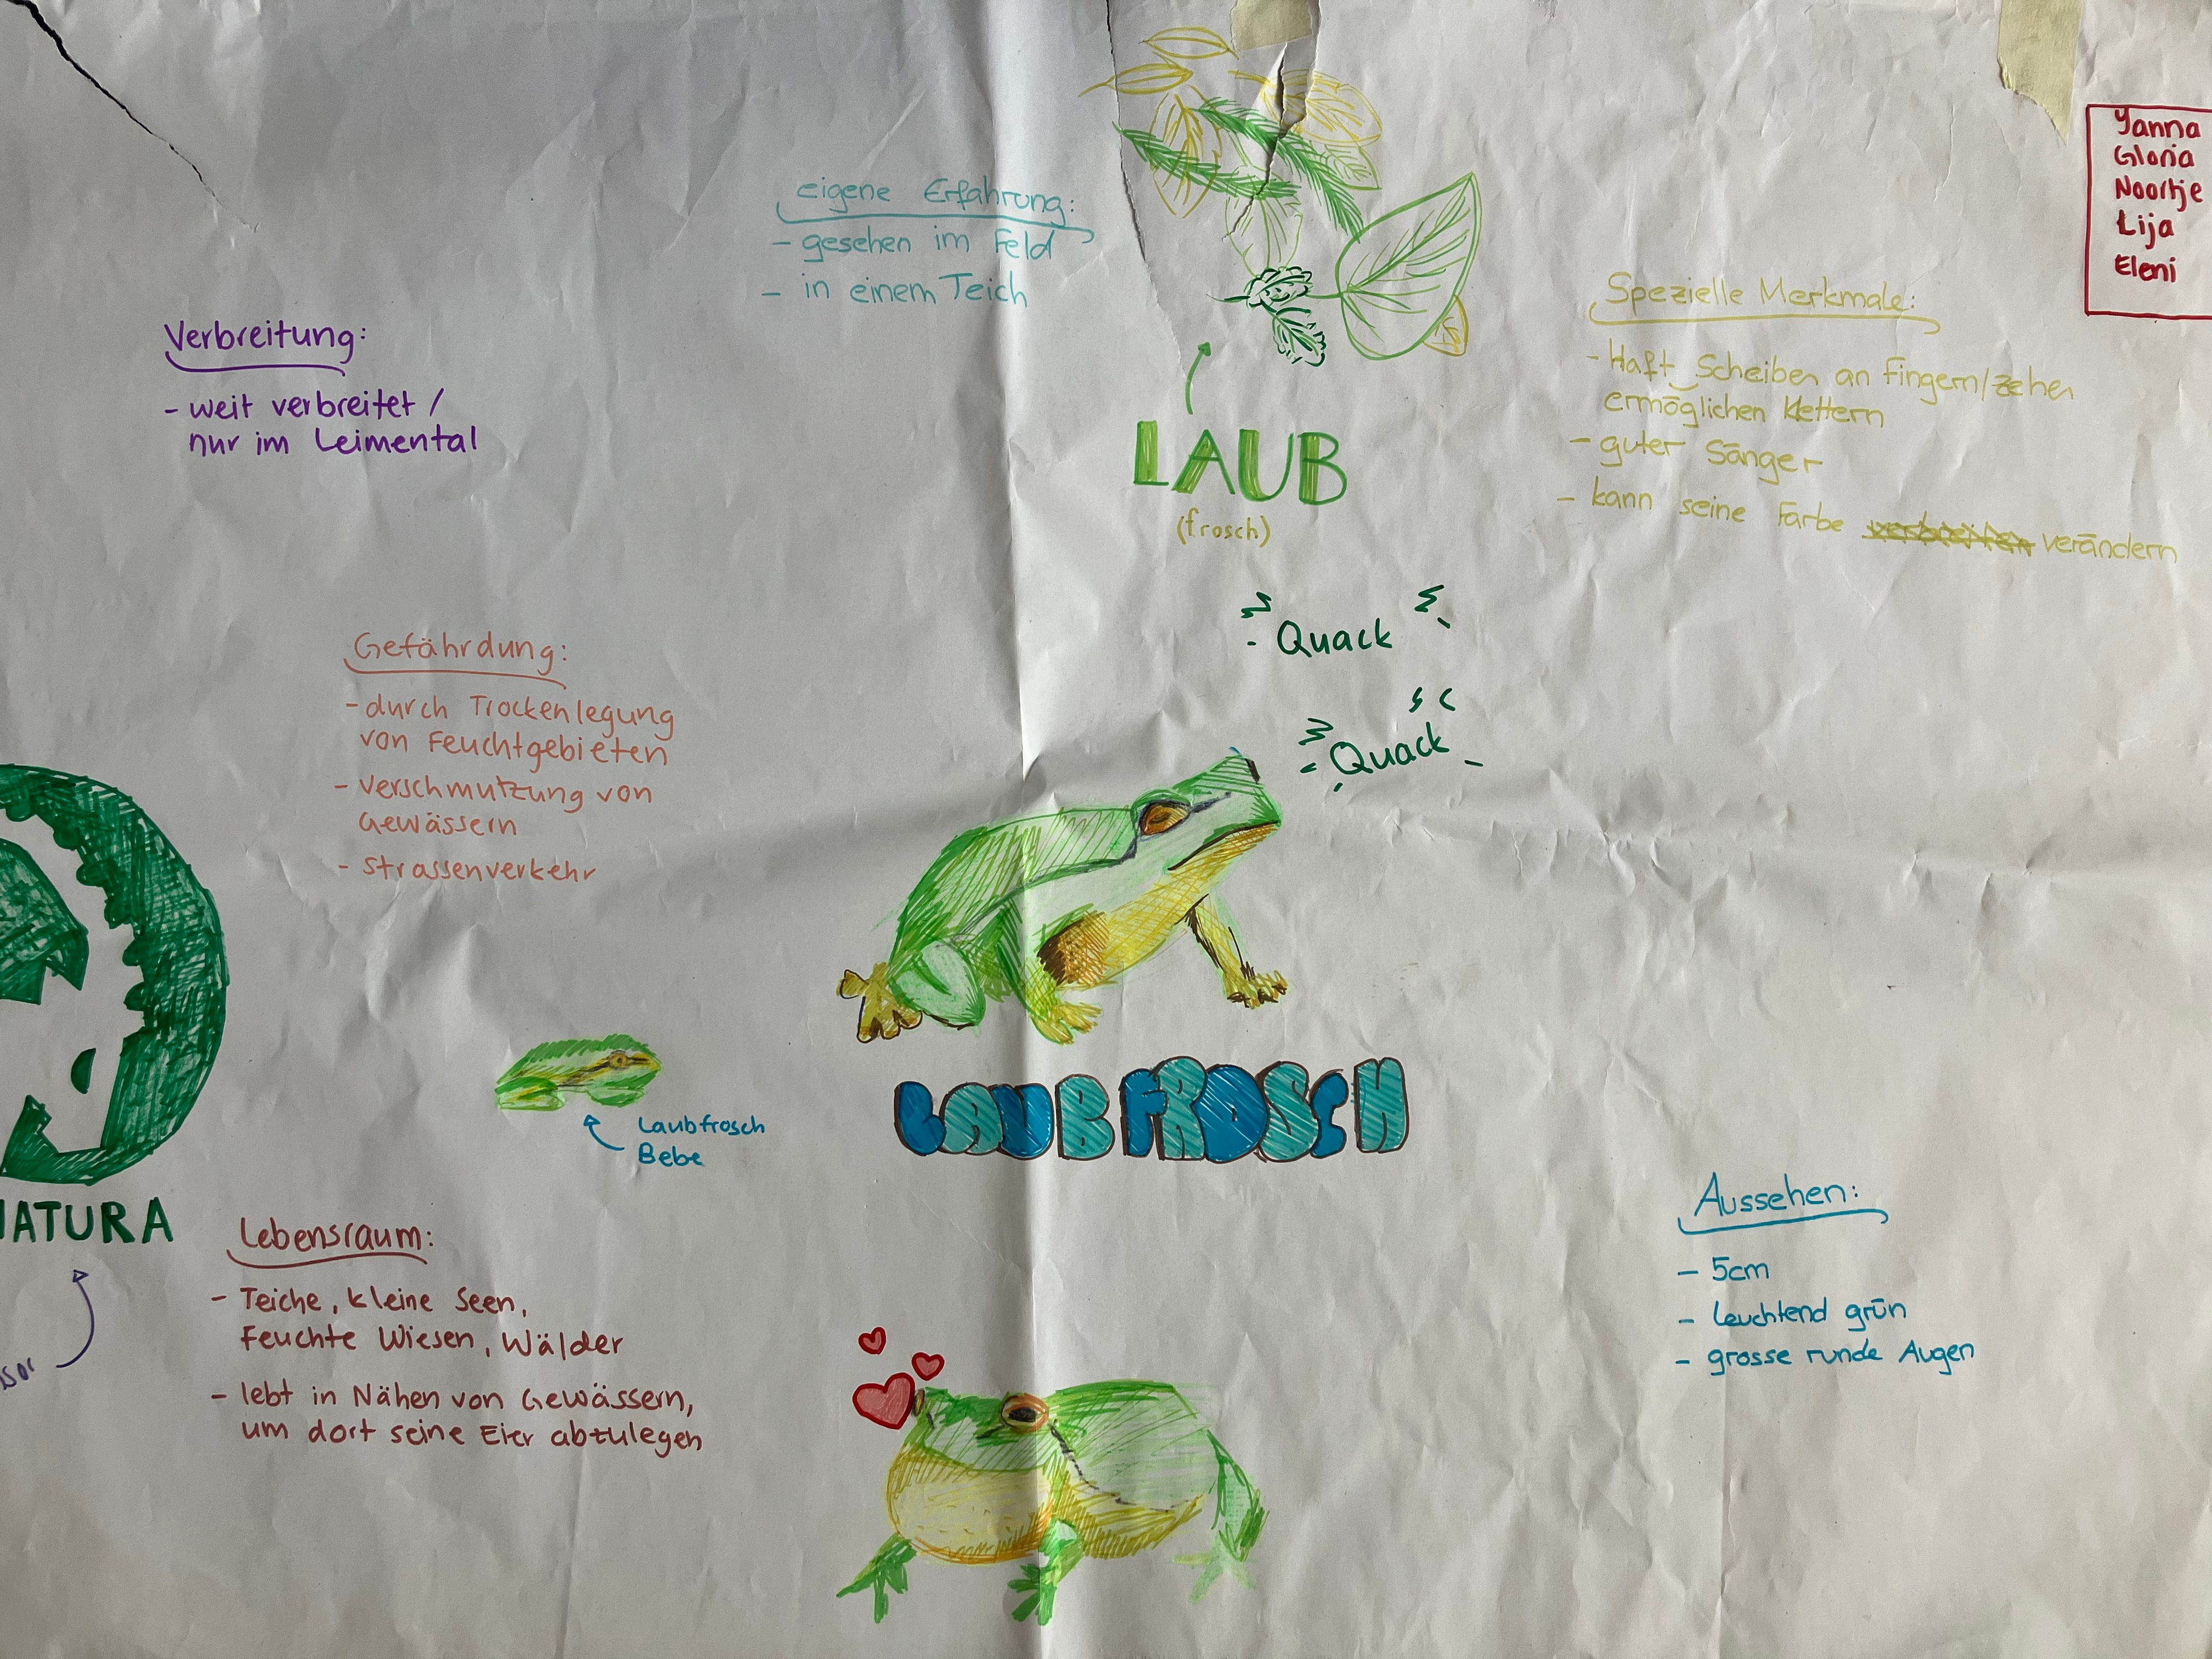 Yanna
Gloria
Noortje
Lija
Eleni
eigene Erfahrung:
- gesehen im Feld
- in einem Teich
Verbreitung:
- weit verbreitet /
nur im Leimental
LAUB
(frosch)
Spezielle Merkmale:
- Haft Scheiben an Fingern/zehen
ermöglichen klettern
- guter Sänger
- kann seine Farbe verändern
Quack
Quack
Gefährdung:
- durch Trockenlegung
von Feuchtgebieten
- verschmutzung von
Gewässern
- strassenverkehr
LAUBFROSCH
Laubfrosch
Bebe
NATURA
Lebensraum:
- Teiche, kleine Seen,
Feuchte Wiesen, Wälder
- lebt in Nähen von Gewässern,
um dort seine Eier abzulegen
Aussehen:
- 5cm
- leuchtend grün
- grosse runde Augen